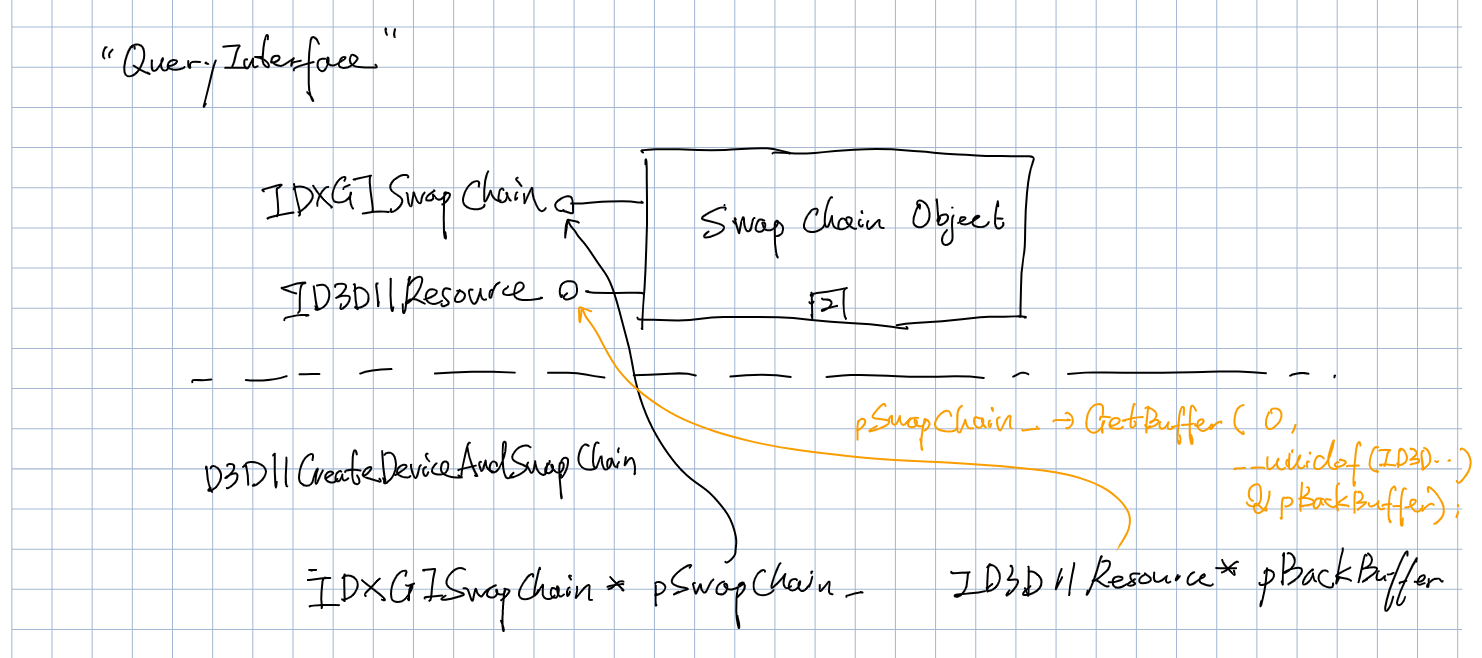 "QueryInterface"
IDXGISwapChain
Swap Chain Object
ID3D11Resource
2
pSwapChain_ → GetBuffer ( 0,
__uuidof (ID3D..)
& pBackBuffer);
D3D11CreateDeviceAndSwapChain
IDXGISwapChain* pSwapChain_
ID3D11Resource* pBackBuffer